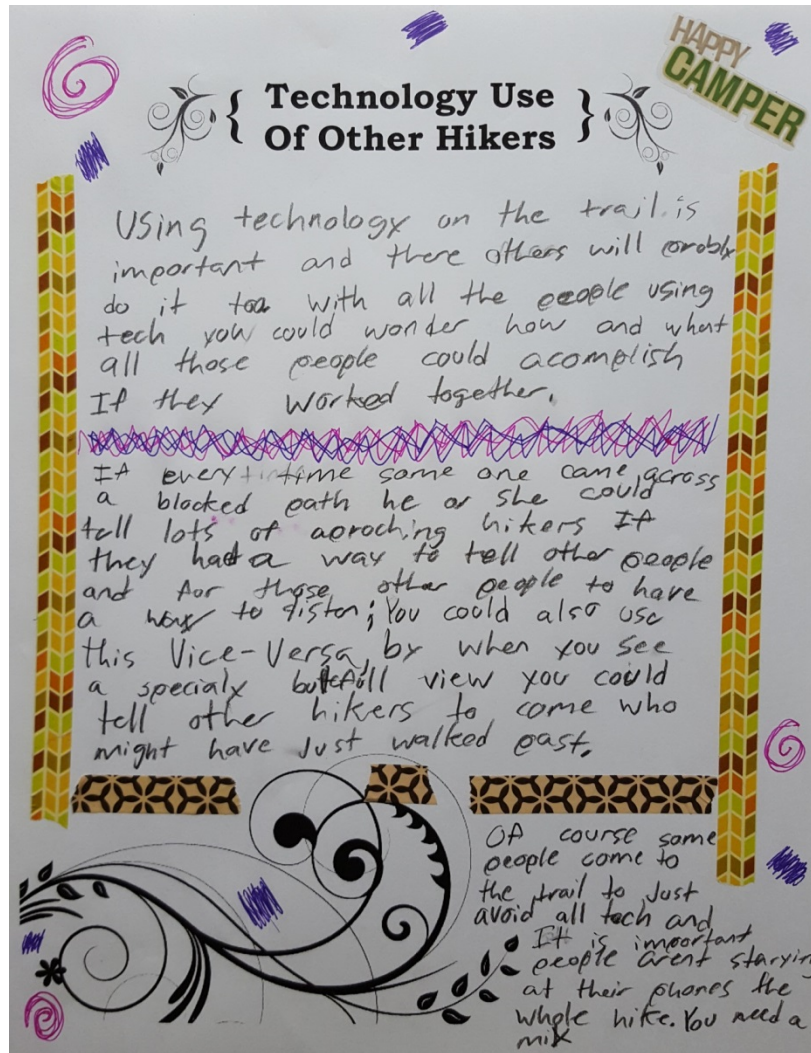 HAPPY
CAMPER
{ Technology Use
Of Other Hikers }
Using technology on the trail is
important and there others will probly
do it too with all the people using
tech you could wonder how and what
all those people could acomplish
If they worked together.
If every time some one came across
a blocked path he or she could
tell lots of aproching hikers If
they had a way to tell other people
and for those other people to have
a way to listen; You could also use
this Vice-Versa, by when you see
a specialy view you could
tell other hikers to come who
might have Just walked past.
Of course some
people come to
the trail to Just
avoid all tech and
It is important
people arent staryin
at their phones the
whole hike. You need a
mix